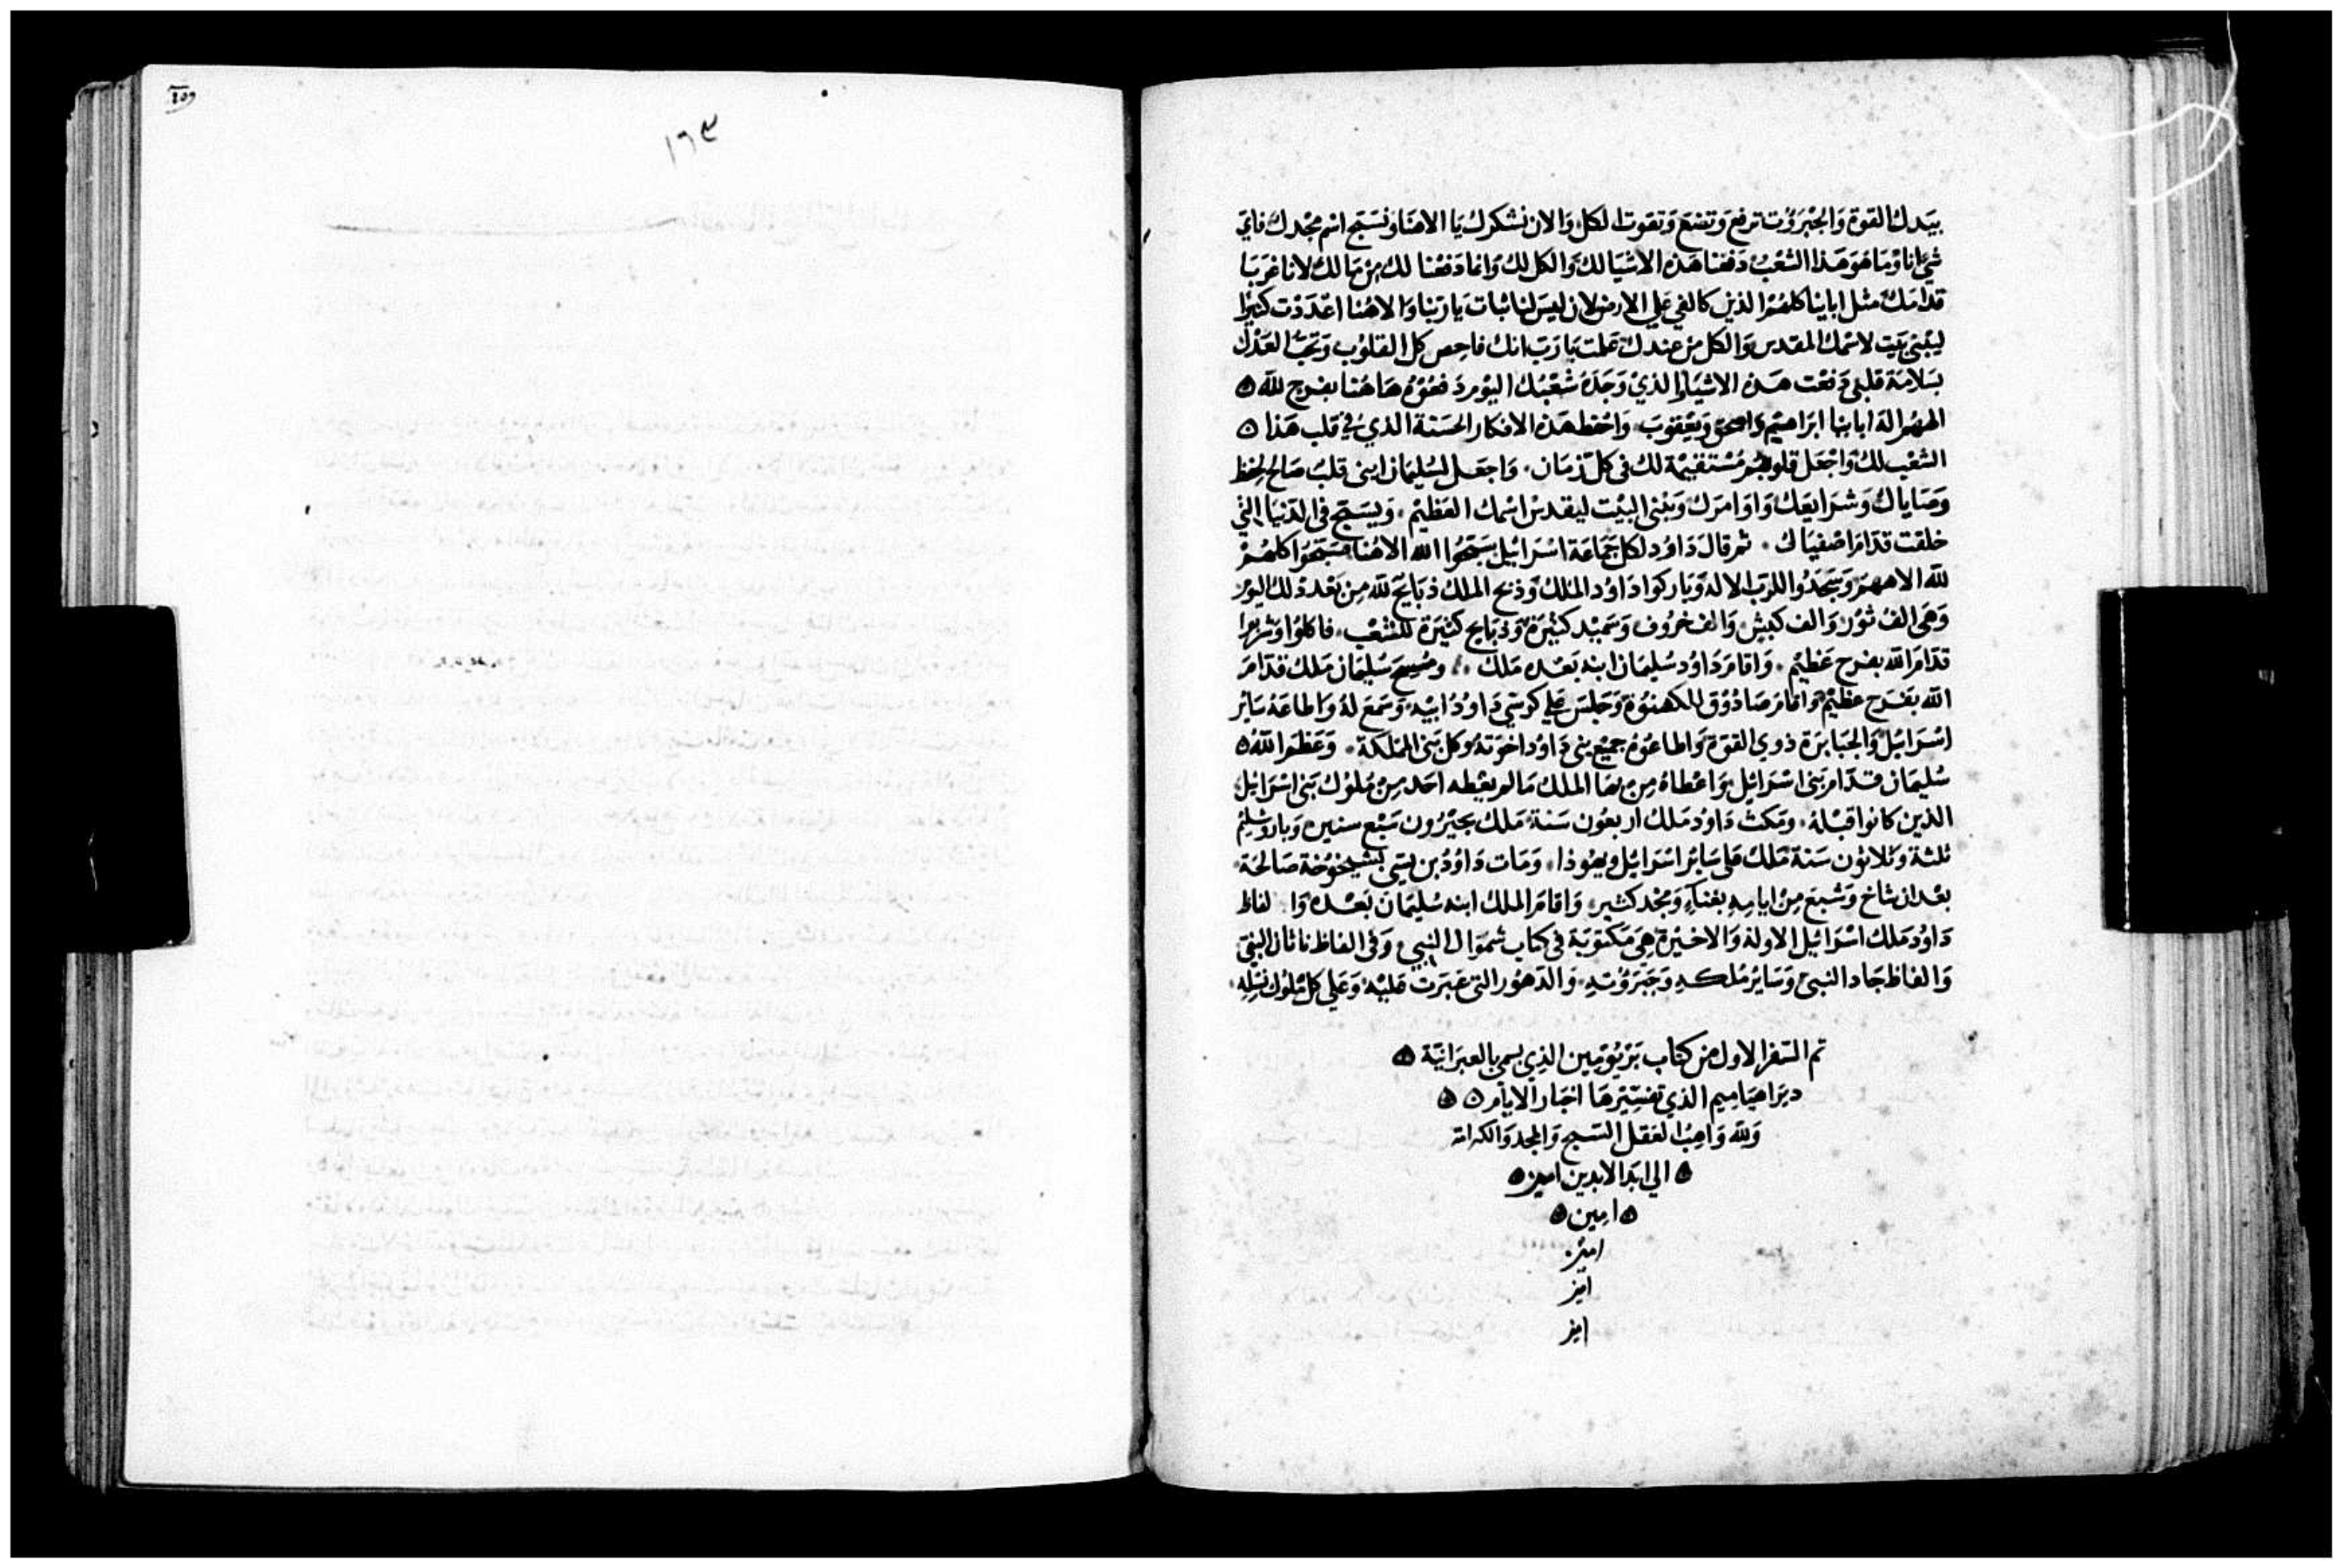 بيَدك القوة وَالجبْرَوُت ترفع وَتضع وَتقوت الكل والان نشكرك يَا الاهنَا ونسَبح اسْم مجْدك فاي
شي انا وَمَا هوَ هَذا الشعْبُ دَفعنا هَذه الاشيَا لك وَالكل لك وَانما دَفعْنا لك مِن مَا لك لانا غربَا
قدامَك مثل ابَاينا كلهُمْ الذين كالفي عَلي الارض لان ليسَ لنا ثبات يَا ربَنا وَالاهُنا اعْدَدْت كثيرًا
ليبْني بَيت لاسْمك المقدس وَالكل مِن عندك عَلمت يَا رَب انك فاحِص كل القلوُب وَتحبُّ العَدْل
بسَلامَة قلبي دَفعْت هَذه الاشيَا وَالذيْ وَجَدَهُ شعْبُك اليوم دَفعُوهُ هَاهُنا بفرح لله
اللهُم اله ابَاينا ابرَاهيْم وَاسحق وَيعْقوبَ وَاحْفظ هَذه الافكار الحسَنة الذي في قلب هَذا
الشعْب لك وَاجْعَل قلوبهُم مُسْتقيمة لك في كل زمَان وَاجعَل لسُليمَان ابني قلبُ صَالح لحفظ
وَصَاياك وَشرَايعَك وَاوَامرَك وَيَبْني البيْت ليقدس اسْمك العَظيْم وَيسَبح في الدنيَا التي
خلقت قدام اصْفيَاك ثم قالَ دَاوُد لكل جَمَاعَة اسْرَائيل سَبحُوا الله الاهُنا فسَبحُوا كلهُمْ
لله الاههم وَسَجَدُوا للرَب الاله وَبَاركوا دَاوُد الملك وَذبح الملك ذبَايح لله مِن بَعْد ذلك اليوْم
وَهي الف ثوْر وَالف كبش وَالف خرُوف وَسَميْد كثيرَة وَذبَايح كثيرَة للشعْب فاكلوُا وَشربوا
قدام الله بفرح عَظيْم وَاقامَ دَاوُد سُليمَان ابنه بَعْده مَلك وَمُسِحَ سُليمَان مَلك قدامَ
الله بفرَح عظيْم وَاقامَ صَادُوْق للكهنوُة وَجَلسَ عَلي كرسي دَاوُد ابيْه وَسَمعَ لهُ وَاطاعَهُ سَايْر
اسْرَائيل وَالجبَابرَة ذوي القوَة وَاطاعُوهُ جميْع بني دَاوُد اخوَتهُ وكل بَني المملكة وَعَظم الله
سُليمَان قدام بَني اسْرَائيل وَاعْطاهُ مِن بهَا الملك مَا لم يعْطه احَد مِنْ مُلوُك بَني اسْرَائيل
الذين كانوا قبْلهُ وَمَكث دَاوُد مَلك اربعُون سَنة مَلك بحبْرُون سَبْع سنين وَباروشليْم
ثلثة وَثلاثون سَنة مَلك عَلي سَاير اسْرَائيل وَيهوُذا وَمَات دَاوُد بن يسَي بشيْخوُخة صَالحَة
بعْد ان شاخ وَشبعَ مِن ايامِه بغناء وَمَجْد كثير وَاقامَ الملك ابنه سُليمَان بَعْده وَالفاظ
دَاوُد مَلك اسْرَائيل الاولة وَالاخيْرَة هِيَ مَكتوُبَة في كتاب شموَال النبي وَفي الفاظ ناثان النبي
وَالفاظ جَاد النبي وَسَاير مُلكه وَجَبَرَوُته وَالدهوُر التي عَبَرَت عَليْه وَعَلي كل مُلوُك نسْله
تم السفر الاول من كتاب بَرَيوُمِين الذي يسمي بالعبرَانيّة
دبرَا هيَامِيم الذي تفسِيْرهَا اخبَار الايام
وَلله وَاهِبُ العَقل السَبح وَالمجد وَالكرامة
الي ابَد الابدين امين
امِين
امين
امين
امين
١٦٣